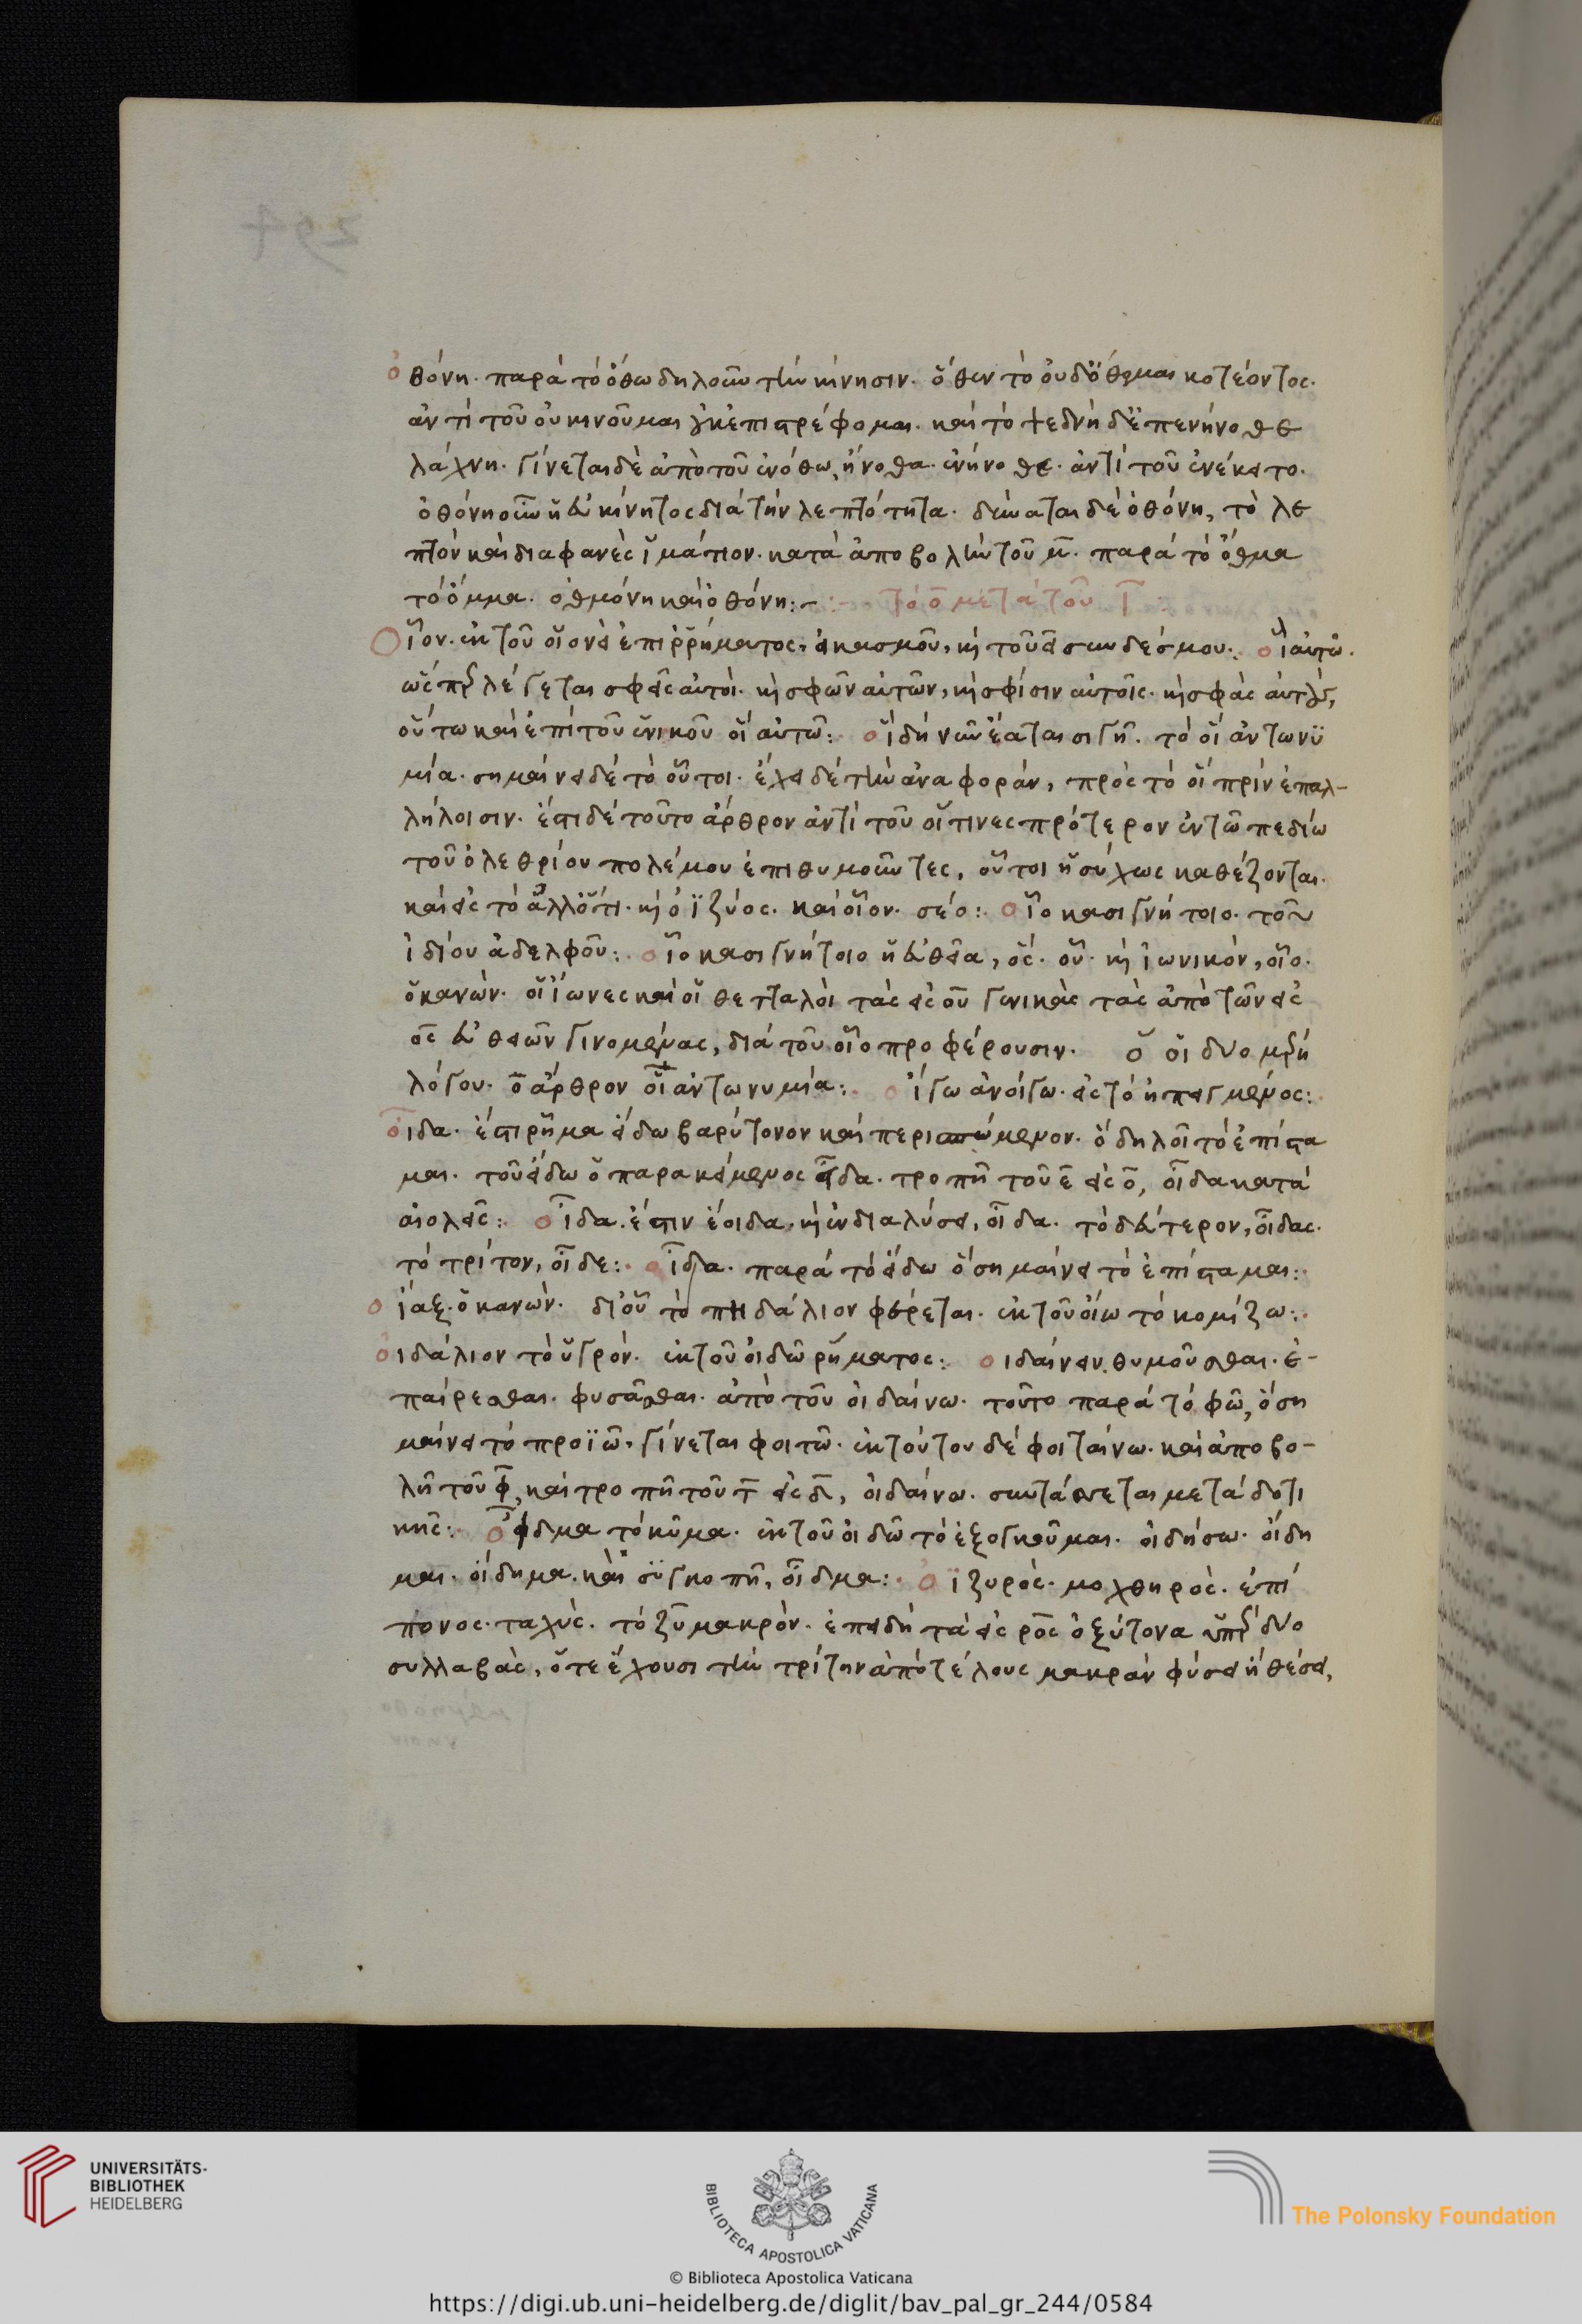 ὀθόνη. παρὰ τὸ ὄθω δηλοῦν τὴν κίνησιν. ὅθεν τὸ οὐδ' ὄθομαι κοτέοντος.
ἀντὶ τοῦ οὐ κινοῦμαι ἐπιστρέφομαι. καὶ τὸ ψεδνὴ δ' ἐπενήνοθε
λάχνη. γίνεται δὲ ἀπὸ τοῦ ἐνόθω, ἤνοθα. ἐνήνοθε. ἀντὶ τοῦ ἐνέκειτο.
ὀθόνη οὖν ἡ εὐκίνητος διὰ τὴν λεπτότητα. δύναται δὲ ὀθόνη, τὸ λε
πτὸν καὶ διαφανὲς ἱμάτιον. κατὰ ἀποβολὴν τοῦ μ̅. παρὰ τὸ ὄθμα
τὸ ὄμμα. ὀθμόνη καὶ ὀθόνη:- τὸ ο̅ μετὰ τοῦ ι̅
Οἷον. ἐκ τοῦ οἱονεὶ ἐπιρρήματος, εἰκασμοῦ, καὶ τοῦ εἰ συνδέσμου: οἷ αὐτῷ.
ὥσπερ λέγεται σφεῖς αὐτοί. καὶ σφῶν αὐτῶν, καὶ σφίσιν αὐτοῖς. καὶ σφᾶς αὐτούς,
οὕτω καὶ ἐπὶ τοῦ ἑνικοῦ οἷ αὐτῷ: οἳ δὴ νῦν ἕαται σιγῇ. τὸ οἳ ἀντωνυ
μία. σημαίνει δὲ τὸ οὗτοι. ἔχει δὲ τὴν ἀναφορὰν, πρὸς τὸ οἳ πρὶν ἐπ' ἀλ-
λήλοισιν. ἔστι δὲ τοῦτο ἄρθρον ἀντὶ τοῦ οἵτινες πρότερον ἐν τῷ πεδίῳ
τοῦ ὀλεθρίου πολέμου ἐπιθυμοῦντες, οὗτοι ἡσύχως καθέζονται.
καὶ εἰς τὸ ἄλλό τι. καὶ ὀϊζύος. καὶ οἷον. σέο: οἷο κασιγνήτοιο. τοῦ
ἰδίου ἀδελφοῦ: οἷο κασιγνήτοιο ἡ εὐθεῖα, ὅς. οὗ. καὶ ἰωνικὸν, οἷο.
ὁ κανών. οἱ ἴωνες καὶ οἱ θετταλοὶ τὰς εἰς ου γενικὰς τὰς ἀπὸ τῶν εἰς
ος εὐθειῶν γινομένας, διὰ τοῦ οιο προφέρουσιν. οἱ δύο μέρη
λόγου. ὃ ἄρθρον οἳ ἀντωνυμία: οἴγω ἀνοίγω. εἰς τὸ ἠπειγμένος:
οἶδα. ἔστι ῥῆμα εἴδω βαρύτονον καὶ περισπώμενον. ὃ δηλοῖ τὸ ἐπίστα
μαι. τοῦ εἴδω ὁ παρακείμενος εἶδα. τροπῇ τοῦ ε̅ εἰς ο̅, οἶδα κατὰ
αἰολεῖς: οἶδα. ἔστιν ἔοιδα. καὶ ἐν διαλύσει, οἶδα. τὸ δεύτερον, οἶδας.
τὸ τρίτον, οἶδε: οἶδα. παρὰ τὸ εἴδω ὃ σημαίνει τὸ ἐπίσταμαι:
οἴαξ. ὁ κανών. δι' οὗ τὸ πηδάλιον φέρεται. ἐκ τοῦ οἴω τὸ κομίζω:
οἰδάλιον τὸ ὑγρόν. ἐκ τοῦ οἰδῶ ῥήματος: οἰδαίνειν. θυμοῦσθαι. ἐ-
παίρεσθαι. φυσᾶσθαι. ἀπὸ τοῦ οἰδαίνω. τοῦτο παρὰ τὸ φῶ, ὃ ση
μαίνει τὸ προϊῶ. γίνεται φοιτῶ. ἐκ τούτου δὲ φοιταίνω. καὶ ἀποβο-
λῇ τοῦ φ̅, καὶ τροπῇ τοῦ τ̅ εἰς δ̅, οἰδαίνω. συντάσσεται μετὰ δοτι
κῆς: οἶδμα τὸ κῦμα. ἐκ τοῦ οἰδῶ τὸ ἐξογκοῦμαι. οἰδήσω. οἴδη
μαι. οἴδημα. καὶ συγκοπῇ, οἶδμα: ὀϊζυρός. μοχθηρός. ἐπί
πονος. ταχύς. τὸ ζυ μακρόν. ἐπειδὴ τὰ εἰς ρος ὀξύτονα ὑπὲρ δύο
συλλαβὰς, ὅτε ἔχουσι τὴν τρίτην ἀπὸ τέλους μακρὰν φύσει ἢ θέσει,
UNIVERSITÄTS-
BIBLIOTHEK
HEIDELBERG
BIBLIOTECA APOSTOLICA VATICANA
The Polonsky Foundation
© Biblioteca Apostolica Vaticana
https://digi.ub.uni-heidelberg.de/diglit/bav_pal_gr_244/0584